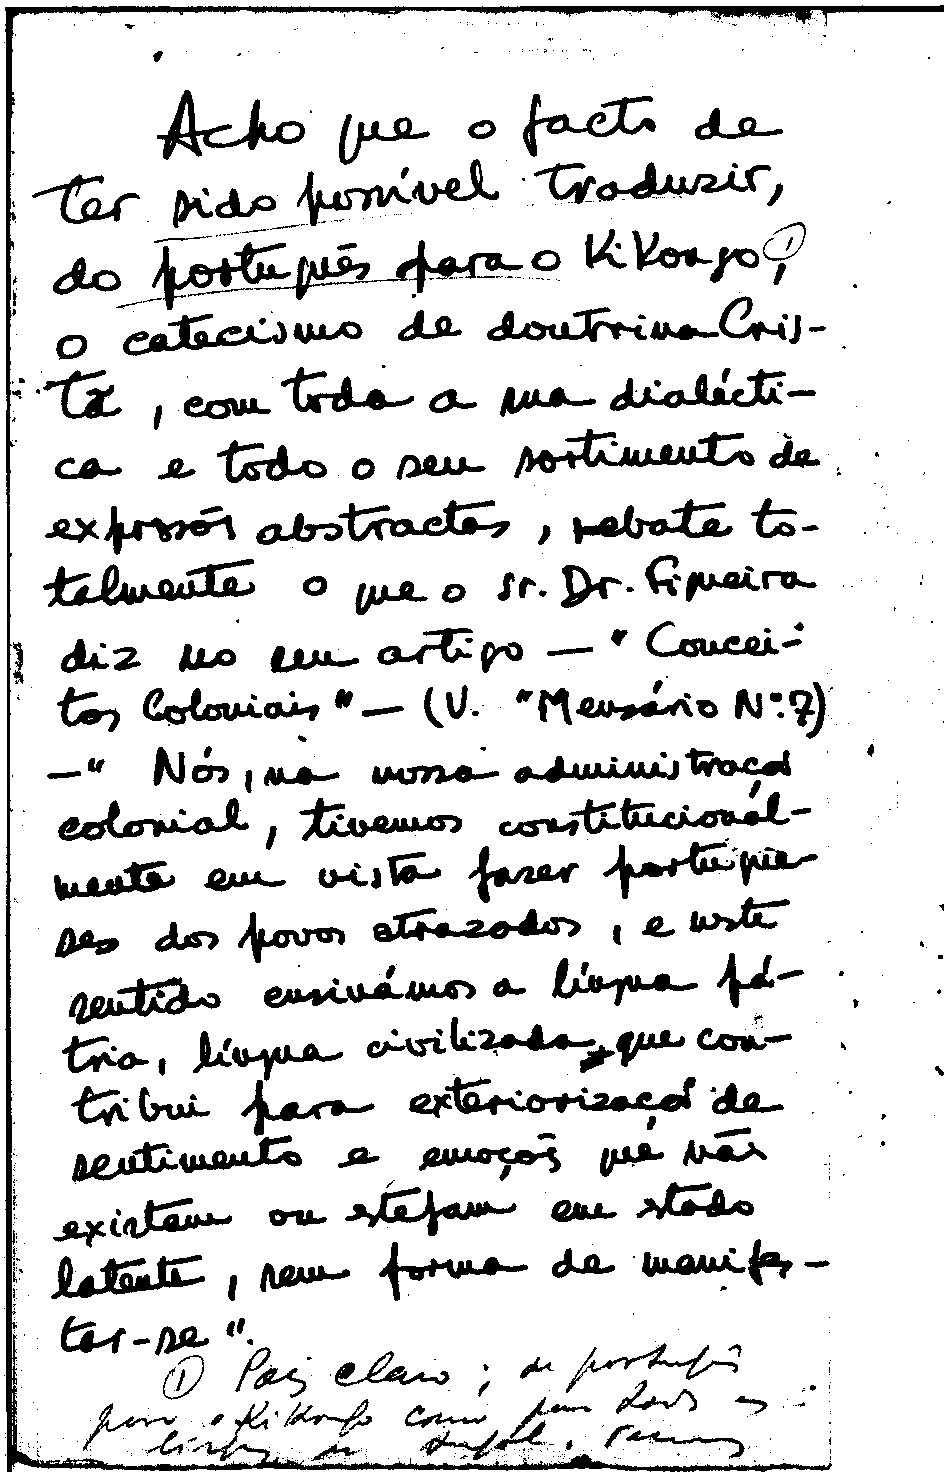 Acho que o facto de
ter sido possível traduzir,
do português para o KiKongo, ①
o catecismo de doutrina Cris-
tã, com toda a sua dialécti-
ca e todo o seu sortimento de
expressões abstractas, rebate to-
talmente o que o Sr. Dr. Figueira
diz no seu artigo — "Concei-
tos Coloniais" — (V. "Mensário Nº. 7)
— " Nós, na nossa administraçaõ
colonial, tivemos constitucionál-
mente em vista fazer portugue-
ses dos povos atrazados, e neste
sentido ensinámos a língua pá-
tria, língua civilizada, que con-
tribui para exteriorizaçaõ de
sentimento e emoções que não
existem ou estejam em estado
latente, sem forma de manifes-
tar-se".
① Pois claro; do português
para o KiKongo como para todas as
línguas de